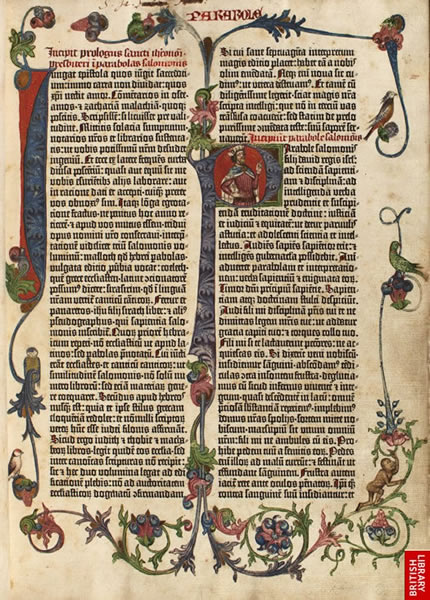 PARABOLE
Incipit prologus sancti iheronimi
presbiteri i parabolas salomonis
Jungat epistola quos iũgit sacerdo-
tium: immo carta non diuidat: quos
xp̃i nectit amor. Cõmentarios in ose-
amos. ⁊ zachariam malachiã· quoq;
poscitis. Scripsissẽ: si licuisset p̃ vali-
tudine. Mittitis solacia sumptuum·
notarios nr̃os ⁊ librarios sustenta-
tis: ut vobis potissimũ nr̃m desudet
ingeniũ. Et ecce ex latere frequẽs turba
diuersa poscẽtiũ: quasi aut equũ sit me
vobis esuriẽtibus alijs laborare: aut
in ratione dati et accepti· cuiq̃ preter
vos obnoxi⁹ sim. Itaq; lõga egrota-
tione fractus· ne penitus hoc anno re-
ticerẽ· ⁊ apud vos mutus essem· tridui
opus nomini vr̃o consecraui· interp̃-
tationem videlicet triũ salomonis vo-
luminũ: masloth qd̃ hebrei parabolas·
vulgata editio p̃uerbia vocat: coeleth·
quẽ grece ecclesiasten· latine cõcionatorẽ
possum⁹ dicere: sirasirim· qd̃ ĩ linguã
nr̃am vertit̃ canticũ canticorũ. Fertur et
panaretos· ihũ filij sirach liber: ⁊ ali⁹
pseudographus· qui sapientia salo-
monis inscribit̃. Quorũ priorẽ hebra-
icum reperi· nõ ecclesiasticũ ut apud la-
tinos: sed parabolas p̃notatũ. Cui iũcti
erãt ecclesiastes· et canticũ canticorũ: ut
similitudinẽ salomonis· nõ solũ nu-
mero librorũ: sed etiã materiarũ gene-
re coequaret. Secundus apud hebreos
nusq̃ est: quia et ipse stilus grecam
eloquẽtiã redolet: et nonnulli scriptorũ
veterũ hũc esse iudei filonis affirmãt.
Sicut ergo iudith ⁊ thobie ⁊ macha-
beorũ libros· legit quidẽ eos ecclesia· sed
inter canonicas scripturas nõ recipit:
sic ⁊ hec duo volumina legat ad edi-
ficationẽ plebis: nõ ad auctoritatem
ecclesiasticorũ dogmatũ cõfirmandam.
Si cui sane septuaginta interpretum
magis editio placet: habet eã a nobis
olim emẽdatã. Neq; enĩ noua sic cu-
dim⁹: ut vetera destruam⁹. Et tamẽ cũ
diligentissime legerit· sciat magis nr̃a
scripta intelligi: que nõ in terciũ vas
trãsfusa coacuerit: sed statim de prelo
purissime cõmẽdata teste: suũ saporẽ ser-
uauerit. Incipiunt parabole salomõis
Parabole salomonis
filij dauid regis isrl̃:
ad sciendã sapienti-
am ⁊ disciplinã: ad
intelligendã verba
prudentie et suscipi-
endã eruditionẽ doctrine: iusticiã
et iudiciũ ⁊ equitatẽ: ut detur paruulis
astutia: et adolescenti scientia et intel-
lectus. Audiẽs sapiẽs sapiẽtior erit: ⁊
intelligẽs gubernacula possidebit. Ani-
aduertet parabolam et interpretatio-
nem: verba sapientiũ ⁊ enigmata eorũ.
Timor dñi principiũ sapiẽtie. Sapien-
tiam atq; doctrinam stulti despiciũt.
Audi fili mi disciplinã pr̃is tui et ne
dimittas legem mr̃is tue: ut addatur
gratia capiti tuo: ⁊ torques collo tuo.
Fili mi si te lactauerint peccores: ne ac-
quiescas eis. Si dixerĩt veni nobiscũ·
insidiemur sanguini· abscõdam⁹ tẽdi-
culas cõtra insontem frustra· degluria-
mus eũ sicud infernus viuentẽ ⁊ inte-
grum· quasi descẽdentẽ in lacũ: omnẽ
p̃ciosã substãtiã repperiem⁹· implebim⁹
domus nr̃as spolijs· sortem mitte no-
biscum· marsupiũ sit unum omniũ
nr̃m: fili mi ne ambules cũ eis. Pro-
hibe pedem tuũ a semitis eorũ. Pedes
enĩ illorũ ad malũ currũt: ⁊ festinãt ut
effundant sanguinem. Frustra autem
iacit̃ rete ante oculos pẽnatorũ. Ipi q̃
contra sanguinẽ suũ insidiantur: et
BRITISH
LIBRARY